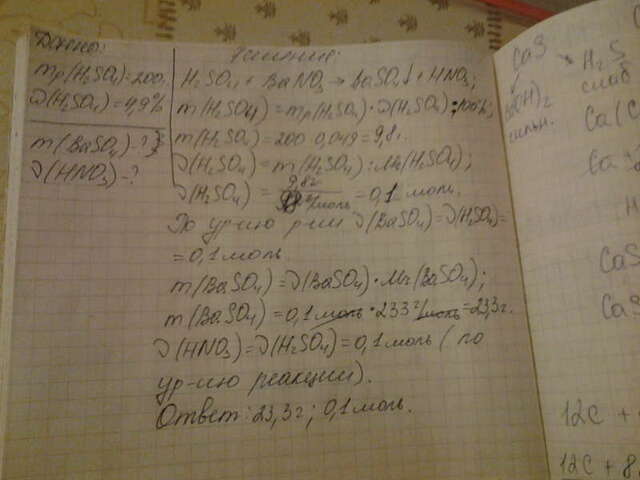 Дано:
mр(H₂SO₄)=200г
ω(H₂SO₄)=4,9%
m(BaSO₄)-?
ν(HNO₃)-?
Решение:
H₂SO₄ + BaNO₃ → BaSO₄↓ + HNO₃;
m(H₂SO₄)=mр(H₂SO₄)·ω(H₂SO₄):100%;
m(H₂SO₄)=200·0,049=9,8г.
ν(H₂SO₄)=m(H₂SO₄):Mr(H₂SO₄);
ν(H₂SO₄)=9,8г/98г/моль=0,1 моль.
По ур-ию р-ии ν(BaSO₄)=ν(H₂SO₄)=
=0,1моль
m(BaSO₄)=ν(BaSO₄)·Mr(BaSO₄);
m(BaSO₄)=0,1моль·233г/моль=23,3г.
ν(HNO₃)=ν(H₂SO₄)=0,1моль(по
ур-ию реакции).
Ответ: 23,3г; 0,1моль.
CaS
H₂S
слаб
(OH)₂
сильн.
Ca(
Ca
CaS
CaS
12C +
12C + 8